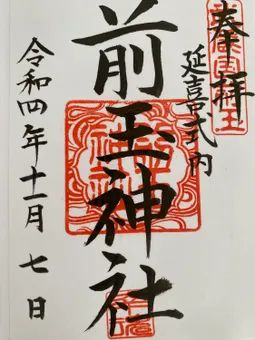 奉拝
延喜式内
前玉神社
令和四年十一月七日